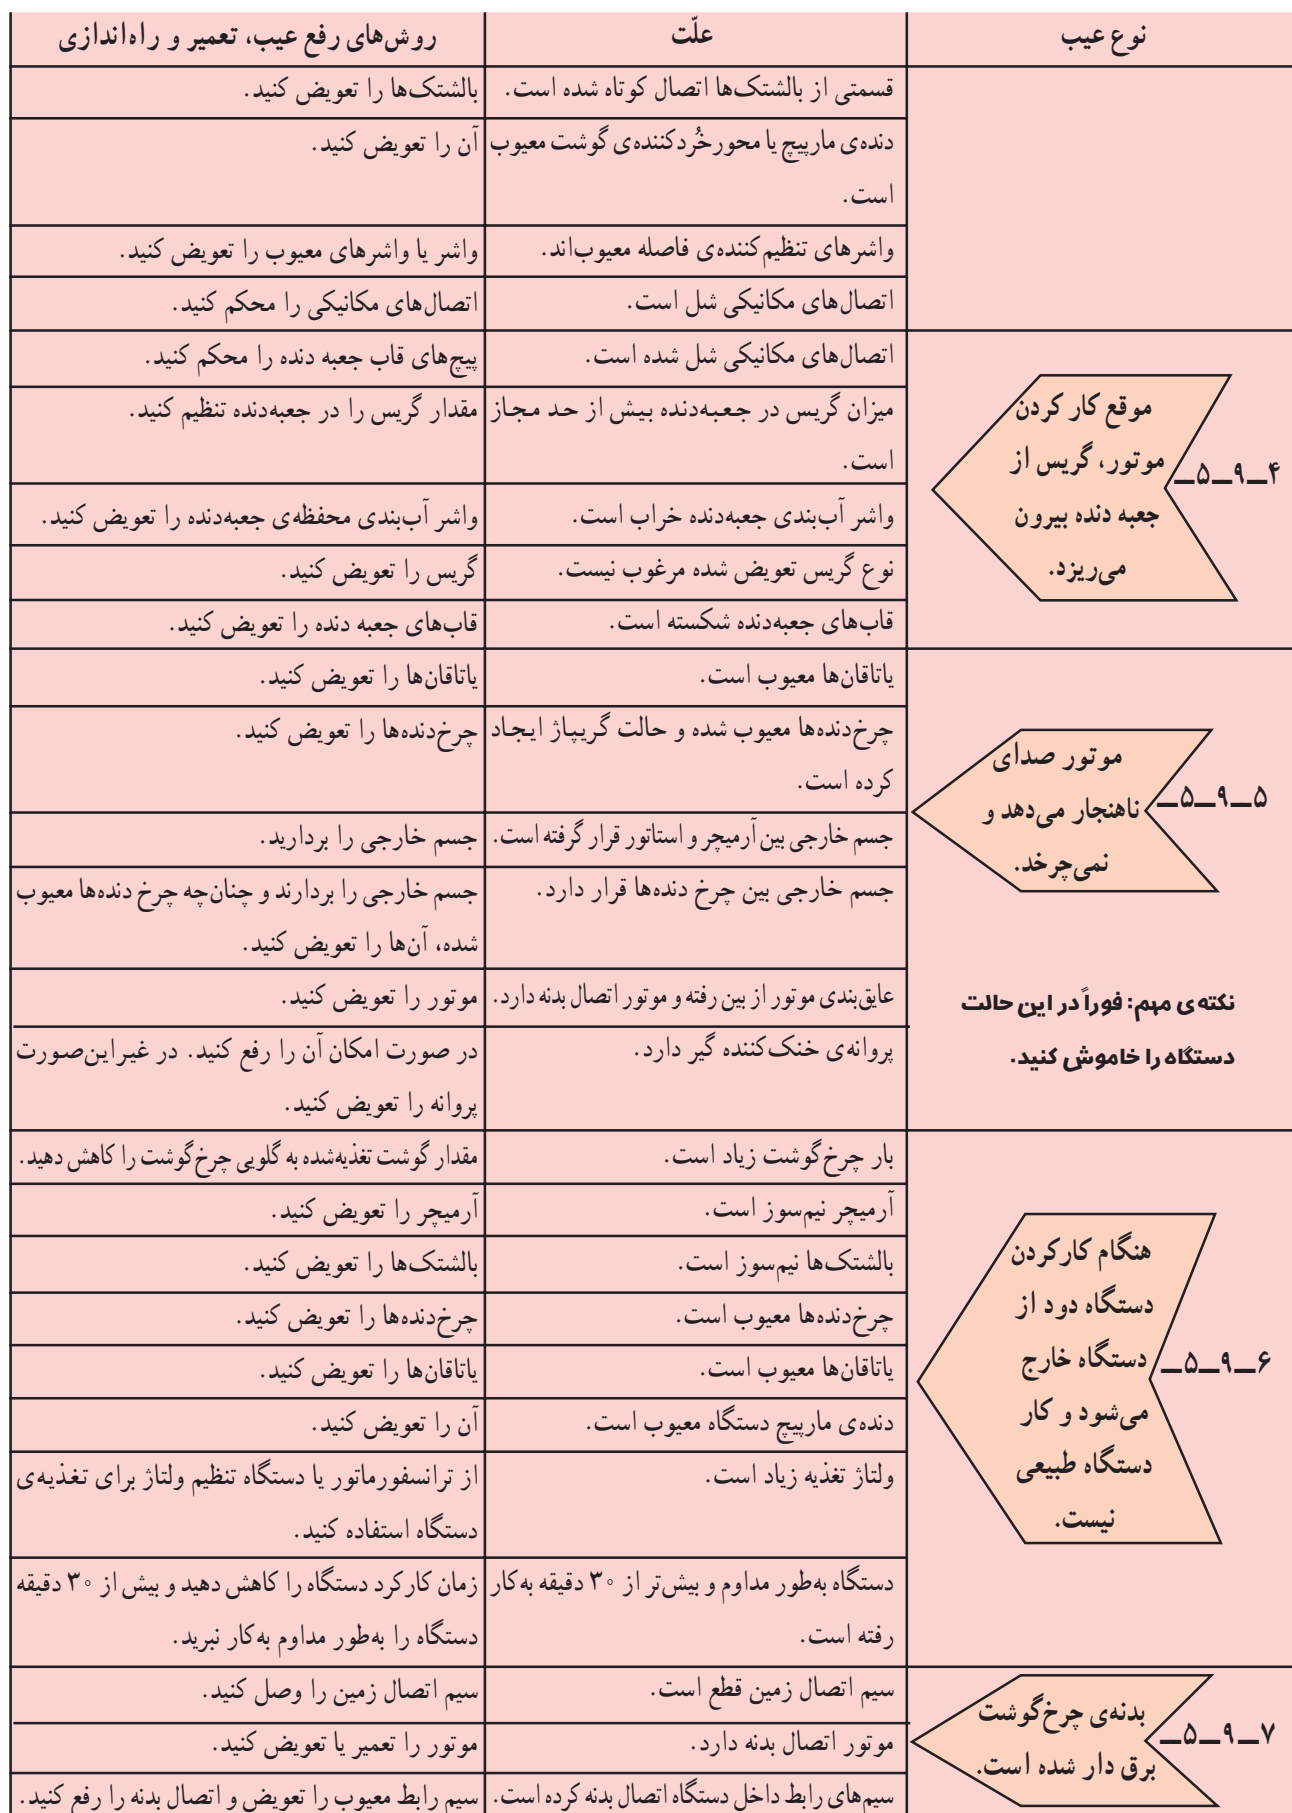 نوع عیب	علّت	روش‌های رفع عیب، تعمیر و راه‌اندازی
قسمتی از بالشتک‌ها اتصال کوتاه شده است.	بالشتک‌ها را تعویض کنید.
دنده‌ی مارپیچ یا محورخُردکننده‌ی گوشت معیوب
است.	آن را تعویض کنید.
واشرهای تنظیم‌کننده‌ی فاصله معیوب‌اند.	واشر یا واشرهای معیوب را تعویض کنید.
اتصال‌های مکانیکی شل است.	اتصال‌های مکانیکی را محکم کنید.
۴ــ۹ــ۵ــ
موقع کار کردن
موتور، گریس از
جعبه دنده بیرون
می‌ریزد.
اتصال‌های مکانیکی شل شده است.	پیچ‌های قاب جعبه دنده را محکم کنید.
میزان گریس در جعبه‌دنده بیش از حد مجاز
است.	مقدار گریس را در جعبه‌دنده تنظیم کنید.
واشر آب‌بندی جعبه‌دنده خراب است.	واشر آب‌بندی محفظه‌ی جعبه‌دنده را تعویض کنید.
نوع گریس تعویض شده مرغوب نیست.	گریس را تعویض کنید.
قاب‌های جعبه‌دنده شکسته است.	قاب‌های جعبه دنده را تعویض کنید.
۵ــ۹ــ۵ــ
موتور صدای
ناهنجار می‌دهد و
نمی‌چرخد.
نکته‌ی مهم: فوراً در این حالت
دستگاه را خاموش کنید.
یاتاقان‌ها معیوب است.	یاتاقان‌ها را تعویض کنید.
چرخ‌دنده‌ها معیوب شده و حالت گریپاژ ایجاد
کرده است.	چرخ‌دنده‌ها را تعویض کنید.
جسم خارجی بین آرمیچر و استاتور قرار گرفته است.	جسم خارجی را بردارید.
جسم خارجی بین چرخ دنده‌ها قرار دارد.	جسم خارجی را بردارند و چنان‌چه چرخ دنده‌ها معیوب
شده، آن‌ها را تعویض کنید.
عایق‌بندی موتور از بین رفته و موتور اتصال بدنه دارد.	موتور را تعویض کنید.
پروانه‌ی خنک‌کننده گیر دارد.	در صورت امکان آن را رفع کنید. در غیراین‌صورت
پروانه را تعویض کنید.
۶ــ۹ــ۵ــ
هنگام کارکردن
دستگاه دود از
دستگاه خارج
می‌شود و کار
دستگاه طبیعی
نیست.
بار چرخ‌گوشت زیاد است.	مقدار گوشت تغذیه‌شده به گلویی چرخ‌گوشت را کاهش دهید.
آرمیچر نیم‌سوز است.	آرمیچر را تعویض کنید.
بالشتک‌ها نیم‌سوز است.	بالشتک‌ها را تعویض کنید.
چرخ‌دنده‌ها معیوب است.	چرخ‌دنده‌ها را تعویض کنید.
یاتاقان‌ها معیوب است.	یاتاقان‌ها را تعویض کنید.
دنده‌ی مارپیچ دستگاه معیوب است.	آن را تعویض کنید.
ولتاژ تغذیه زیاد است.	از ترانسفورماتور یا دستگاه تنظیم ولتاژ برای تغذیه‌ی
دستگاه استفاده کنید.
دستگاه به‌طور مداوم و بیش‌تر از ۳۰ دقیقه به‌کار
رفته است.	زمان کارکرد دستگاه را کاهش دهید و بیش از ۳۰ دقیقه
دستگاه را به‌طور مداوم به‌کار نبرید.
۷ــ۹ــ۵ــ
بدنه‌ی چرخ‌گوشت
برق دار شده است.
سیم اتصال زمین قطع است.	سیم اتصال زمین را وصل کنید.
موتور اتصال بدنه دارد.	موتور را تعمیر یا تعویض کنید.
سیم‌های رابط داخل دستگاه اتصال بدنه کرده است.	سیم رابط معیوب را تعویض و اتصال بدنه را رفع کنید.